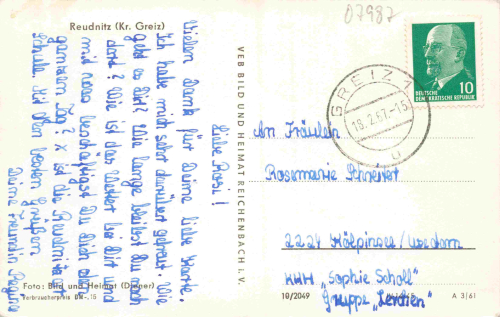 07987
Reudnitz (Kr. Greiz)
Liebe Rosi!
Vielen Dank für Deine liebe Karte.
Ich habe mich sehr darüber gefreut. Wie
geht es Dir? Wie lange bleibst Du noch
dort? Wie ist das Wetter bei Dir und
mit was beschäftigst Du Dich den
ganzen Tag? x ist die Reudnitzer
Schule. Mit den besten Grüßen
Deine Freundin Regina
VEB BILD UND HEIMAT REICHENBACH i. V.
GREIZ 1
18.2.67-15
u
10
DEUTSCHE
DEMOKRATISCHE REPUBLIK
An Fräulein
Rosemarie
2224 Kölpinsee/Usedom
KKH „Sophie Scholl"
Gruppe „Lerchen"
Foto: Bild und Heimat
Verbraucherpreis DM -,15
10/2049
A 3/61